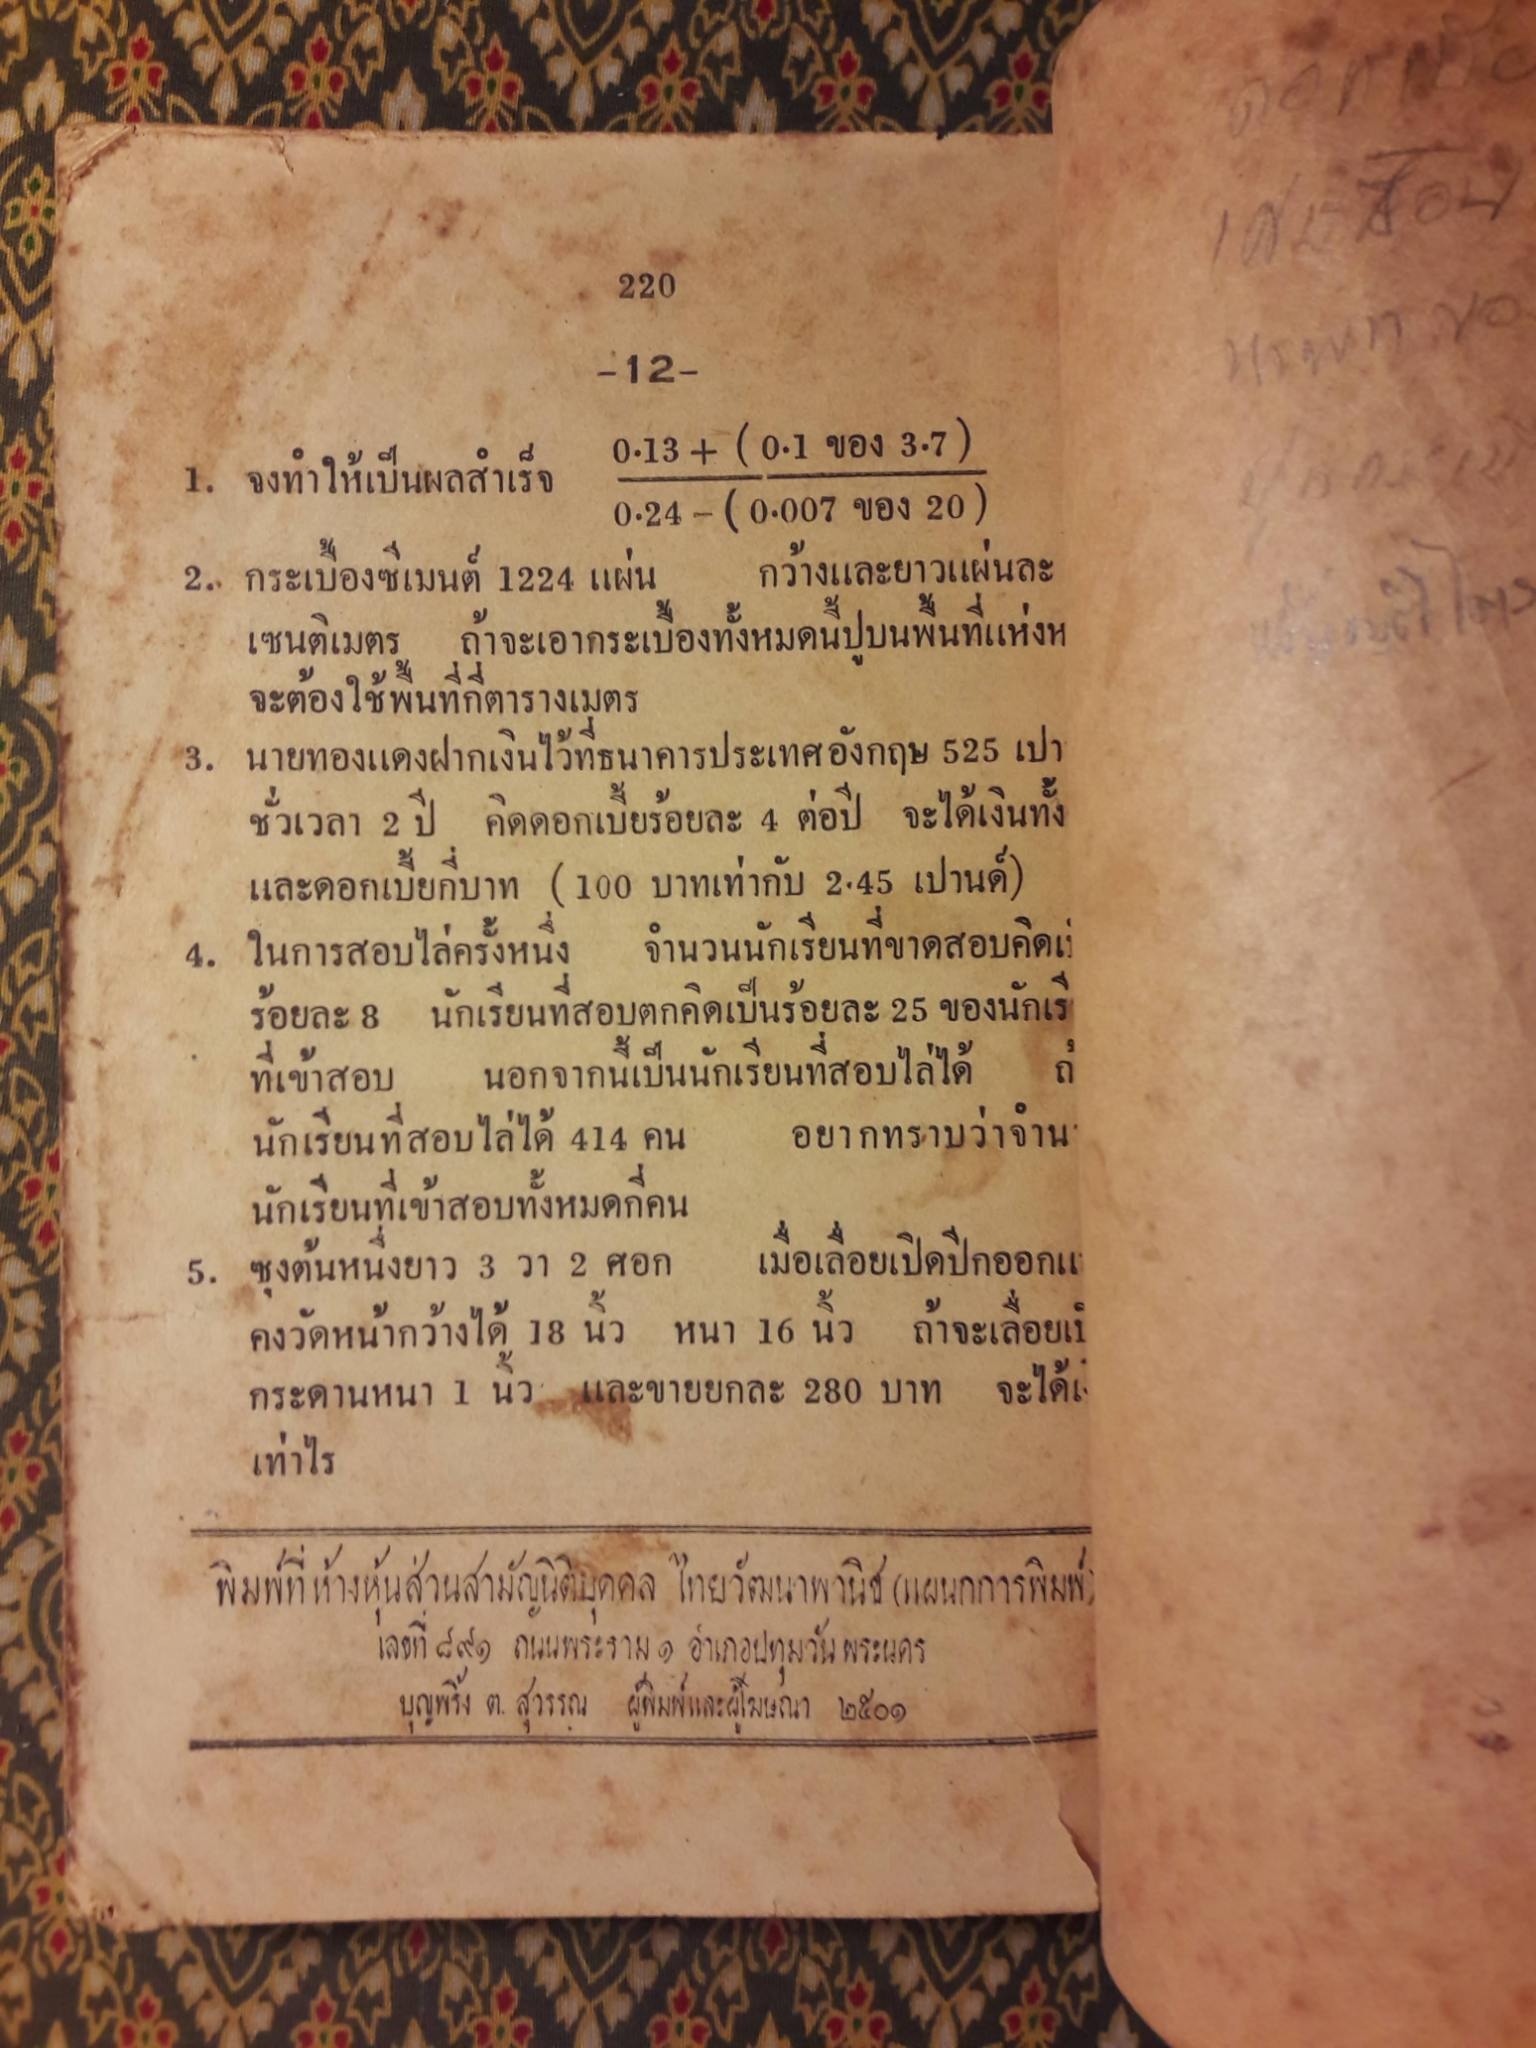 220
-12-
1. จงทำให้เป็นผลสำเร็จ 0·13 + ( 0·1 ของ 3·7 )
0·24 - ( 0·007 ของ 20 )
2. กระเบื้องซีเมนต์ 1224 แผ่น กว้างและยาวแผ่นละ
เซนติเมตร ถ้าจะเอากระเบื้องทั้งหมดนี้ปูบนพื้นที่แห่งห
จะต้องใช้พื้นที่กี่ตารางเมตร
3. นายทองแดงฝากเงินไว้ที่ธนาคารประเทศอังกฤษ 525 เปา
ชั่วเวลา 2 ปี คิดดอกเบี้ยร้อยละ 4 ต่อปี จะได้เงินทั้ง
และดอกเบี้ยกี่บาท ( 100 บาทเท่ากับ 2·45 เปานด์ )
4. ในการสอบไล่ครั้งหนึ่ง จำนวนนักเรียนที่ขาดสอบคิดเ
ร้อยละ 8 นักเรียนที่สอบตกคิดเป็นร้อยละ 25 ของนักเรี
ที่เข้าสอบ นอกจากนี้เป็นนักเรียนที่สอบไล่ได้ ถ
นักเรียนที่สอบไล่ได้ 414 คน อยากทราบว่าจำน
นักเรียนที่เข้าสอบทั้งหมดกี่คน
5. ซุงต้นหนึ่งยาว 3 วา 2 ศอก เมื่อเลื่อยเปิดปีกออกแ
คงวัดหน้ากว้างได้ 18 นิ้ว หนา 16 นิ้ว ถ้าจะเลื่อยเป็
กระดานหนา 1 นิ้ว และขายยกละ 280 บาท จะได้เ
เท่าไร
พิมพ์ที่ ห้างหุ้นส่วนสามัญนิติบุคคล ไทยวัฒนาพานิช (แผนกการพิมพ์)
เลขที่ ๘๙๑ ถนนพระราม ๑ อำเภอปทุมวัน พระนคร
บุญพริ้ง ต. สุวรรณ ผู้พิมพ์และผู้โฆษณา ๒๕๐๑